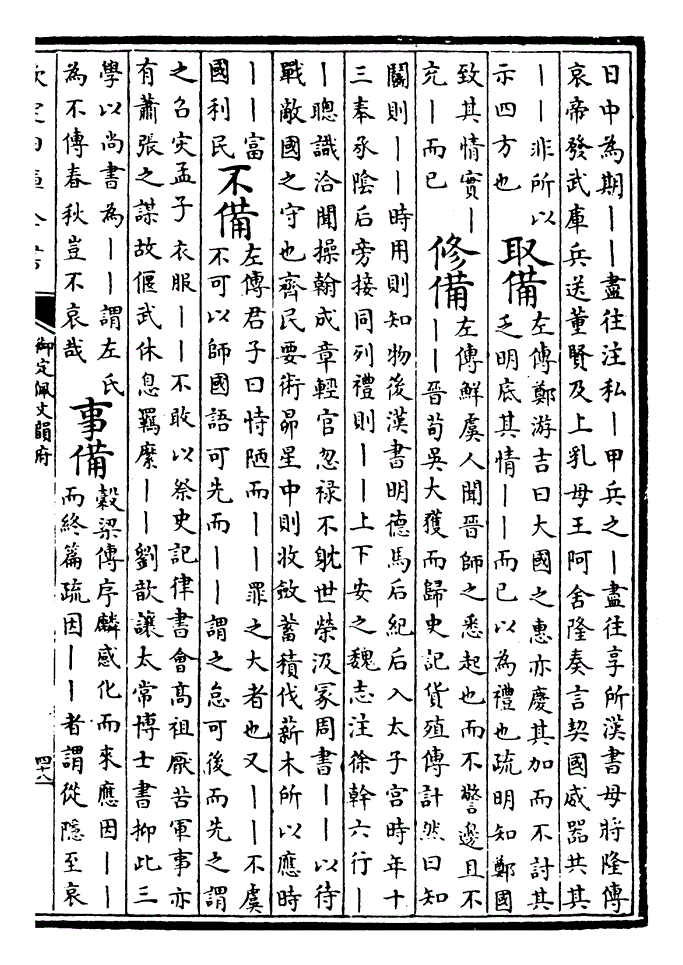 日中為期丨丨盡往注私丨甲兵之丨盡往享所漢書毋將隆傳
哀帝發武庫兵送董賢及上乳母王阿舍隆奏言契國威器共其
丨丨非所以
示四方也
取備
左傳鄭游吉曰大國之惠亦慶其加而不討其
乏明底其情丨丨而已以為禮也疏明知鄭國
致其情實丨
充丨而已
修備
左傳鮮虞人聞晉師之悉起也而不警邊且不
丨丨晉荀吳大獲而歸史記貨殖傳計然曰知
鬬則丨丨時用則知物後漢書明德馬后紀后入太子宫時年十
三奉承陰后旁接同列禮則丨丨上下安之魏志注徐幹六行丨
丨聰識洽聞操翰成章輕官忽禄不躭世榮汲冢周書丨丨以待
戰敵國之守也齊民要術昴星中則收斂蓄積伐薪木所以應時
丨丨富
國利民
不備
左傳君子曰恃陋而丨丨罪之大者也又丨丨不虞
不可以師國語可先而丨丨謂之怠可後而先之謂
之召灾孟子衣服丨丨不敢以祭史記律書會高祖厭苦軍事亦
有蕭張之謀故偃武休息羈縻丨丨劉歆讓太常博士書抑此三
學以尚書為丨丨謂左氏
為不傳春秋豈不哀哉
事備
穀梁傳序麟感化而來應因丨丨
而終篇疏因丨丨者謂從隱至哀
欽定四庫全書
御定佩文韻府
四十八